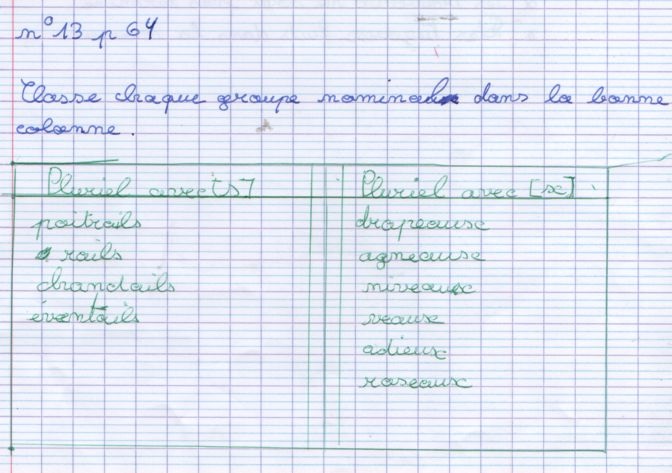 n°13 p 64
Classe chaque groupe nominal dans la bonne
colonne.
Pluriel avec [s] Pluriel avec [x]
poitrails drapeaux
rails agneaux
chandails niveaux
éventails veaux
adieux
roseaux